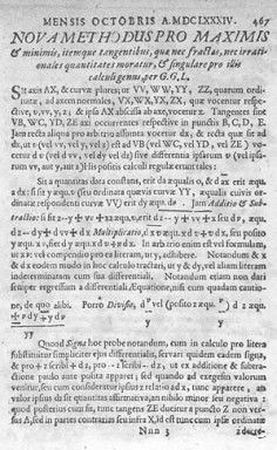 MENSIS OCTOBRIS A. MDCLXXXIV. 467
NOVA METHODUS PRO MAXIMIS
& minimis, itemque tangentibus, quæ nec fractas, nec irrati-
onales quantitates moratur, & singulare pro illis
calculi genus, per G.G.L.
Sit axis AX, & curvæ plures, ut VV, WW, YY, ZZ, quarum ordi-
natæ, ad axem normales, VX, WX, YX, ZX, quæ vocentur respe-
ctive, v, w, y, z; & ipsa AX abscissa ab axe, vocetur x. Tangentes sint
VB, WC, YD, ZE axi occurrentes respective in punctis B, C, D, E.
Jam recta aliqua pro arbitrio assumta vocetur dx, & recta quæ sit ad
dx, ut v (vel w, vel y, vel z) est ad VB (vel WC, vel YD, vel ZE) vo-
cetur dv (vel dw, vel dy vel dz) sive differentia ipsarum v (vel ipsa-
rum w, aut y, aut z) His positis calculi regulæ erunt tales:
Sit a quantitas data constans, erit da æqualis 0, & d ax erit æqu.
a dx: si sit y æqu. v (seu ordinata quævis curvæ YY, æqualis cuivis or-
dinatæ respondenti curvæ VV) erit dy æqu. dv. Jam Additio & Sub-
tractio: si sit z - y + w + x æqu. v, erit d z - y + w + x seu dv, æqu.
dz - dy + dw + dx Multiplicatio, d xv æqu. x dv + v dx, seu posito
y æqu. xv, fiet dy æqu. x dv + v dx. In arbitrio enim est vel formulam,
ut xv, vel compendio pro ea literam, ut y, adhibere. Notandum & x
& dx eodem modo in hoc calculo tractari, ut y & dy, vel aliam literam
indeterminatam cum sua differentiali. Notandum etiam non dari
semper regressum a differentiali Æquatione, nisi cum quadam cautio-
ne, de quo alibi. Porro Divisio, d v/y vel (posito z æqu. v/y) dz æqu.
± v dy ∓ y dv
yy
Quoad Signa hoc probe notandum, cum in calculo pro litera
substituitur simpliciter ejus differentialis, servari quidem eadem signa,
& pro + z scribi + dz, pro - z scribi - dz, ut ex additione & subtra-
ctione paulo ante posita apparet; sed quando ad exegesin valorum
venitur, seu cum consideratur ipsius z relatio ad x, tunc apparere, an
valor ipsius dz sit quantitas affirmativa, an nihilo minor seu negativa:
quod posterius cum fit, tunc tangens ZE ducitur a puncto Z non ver-
sus A, sed in partes contrarias seu infra X, id est tunc cum ipsæ ordinatæ
Nnn 3